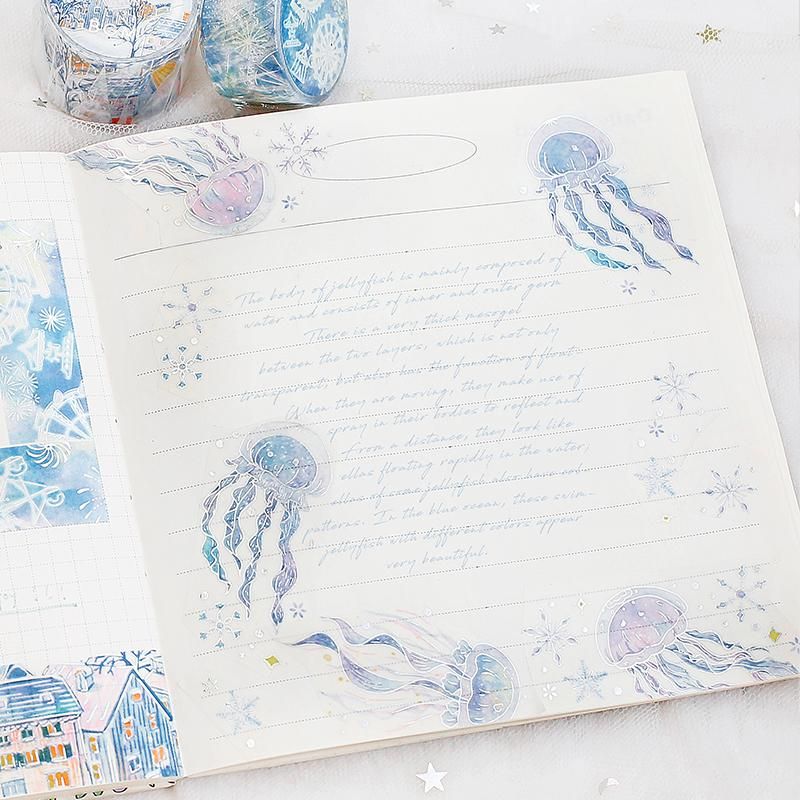 The body of jellyfish is mainly composed of
water and consists of inner and outer germ
There is a very thick mesogel
between the two layers, which is not only
transparent, but also has the function of float-
When they are moving, they make use of
spray in their bodies to reflect and
From a distance, they look like
ellas floating rapidly in the water,
ellas of some jellyfish also have
patterns. In the blue ocean, these swim-
jellyfish with different colors appear
very beautiful.